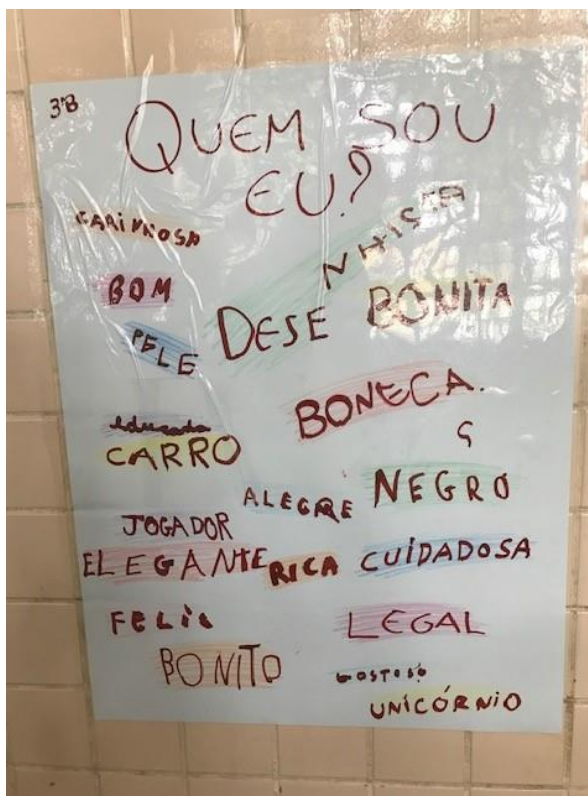 3ºB
QUEM SOU
EU?
CARINHOSA
NHISTA
BOM
DESE
BONITA
PELE
BONECA.
educada
CARRO
ALEGRE
NEGRO
JOGADOR
ELEGANTE
RICA
CUIDADOSA
FELIZ
LEGAL
BONITO
GOSTOSO
UNICÓRNIO